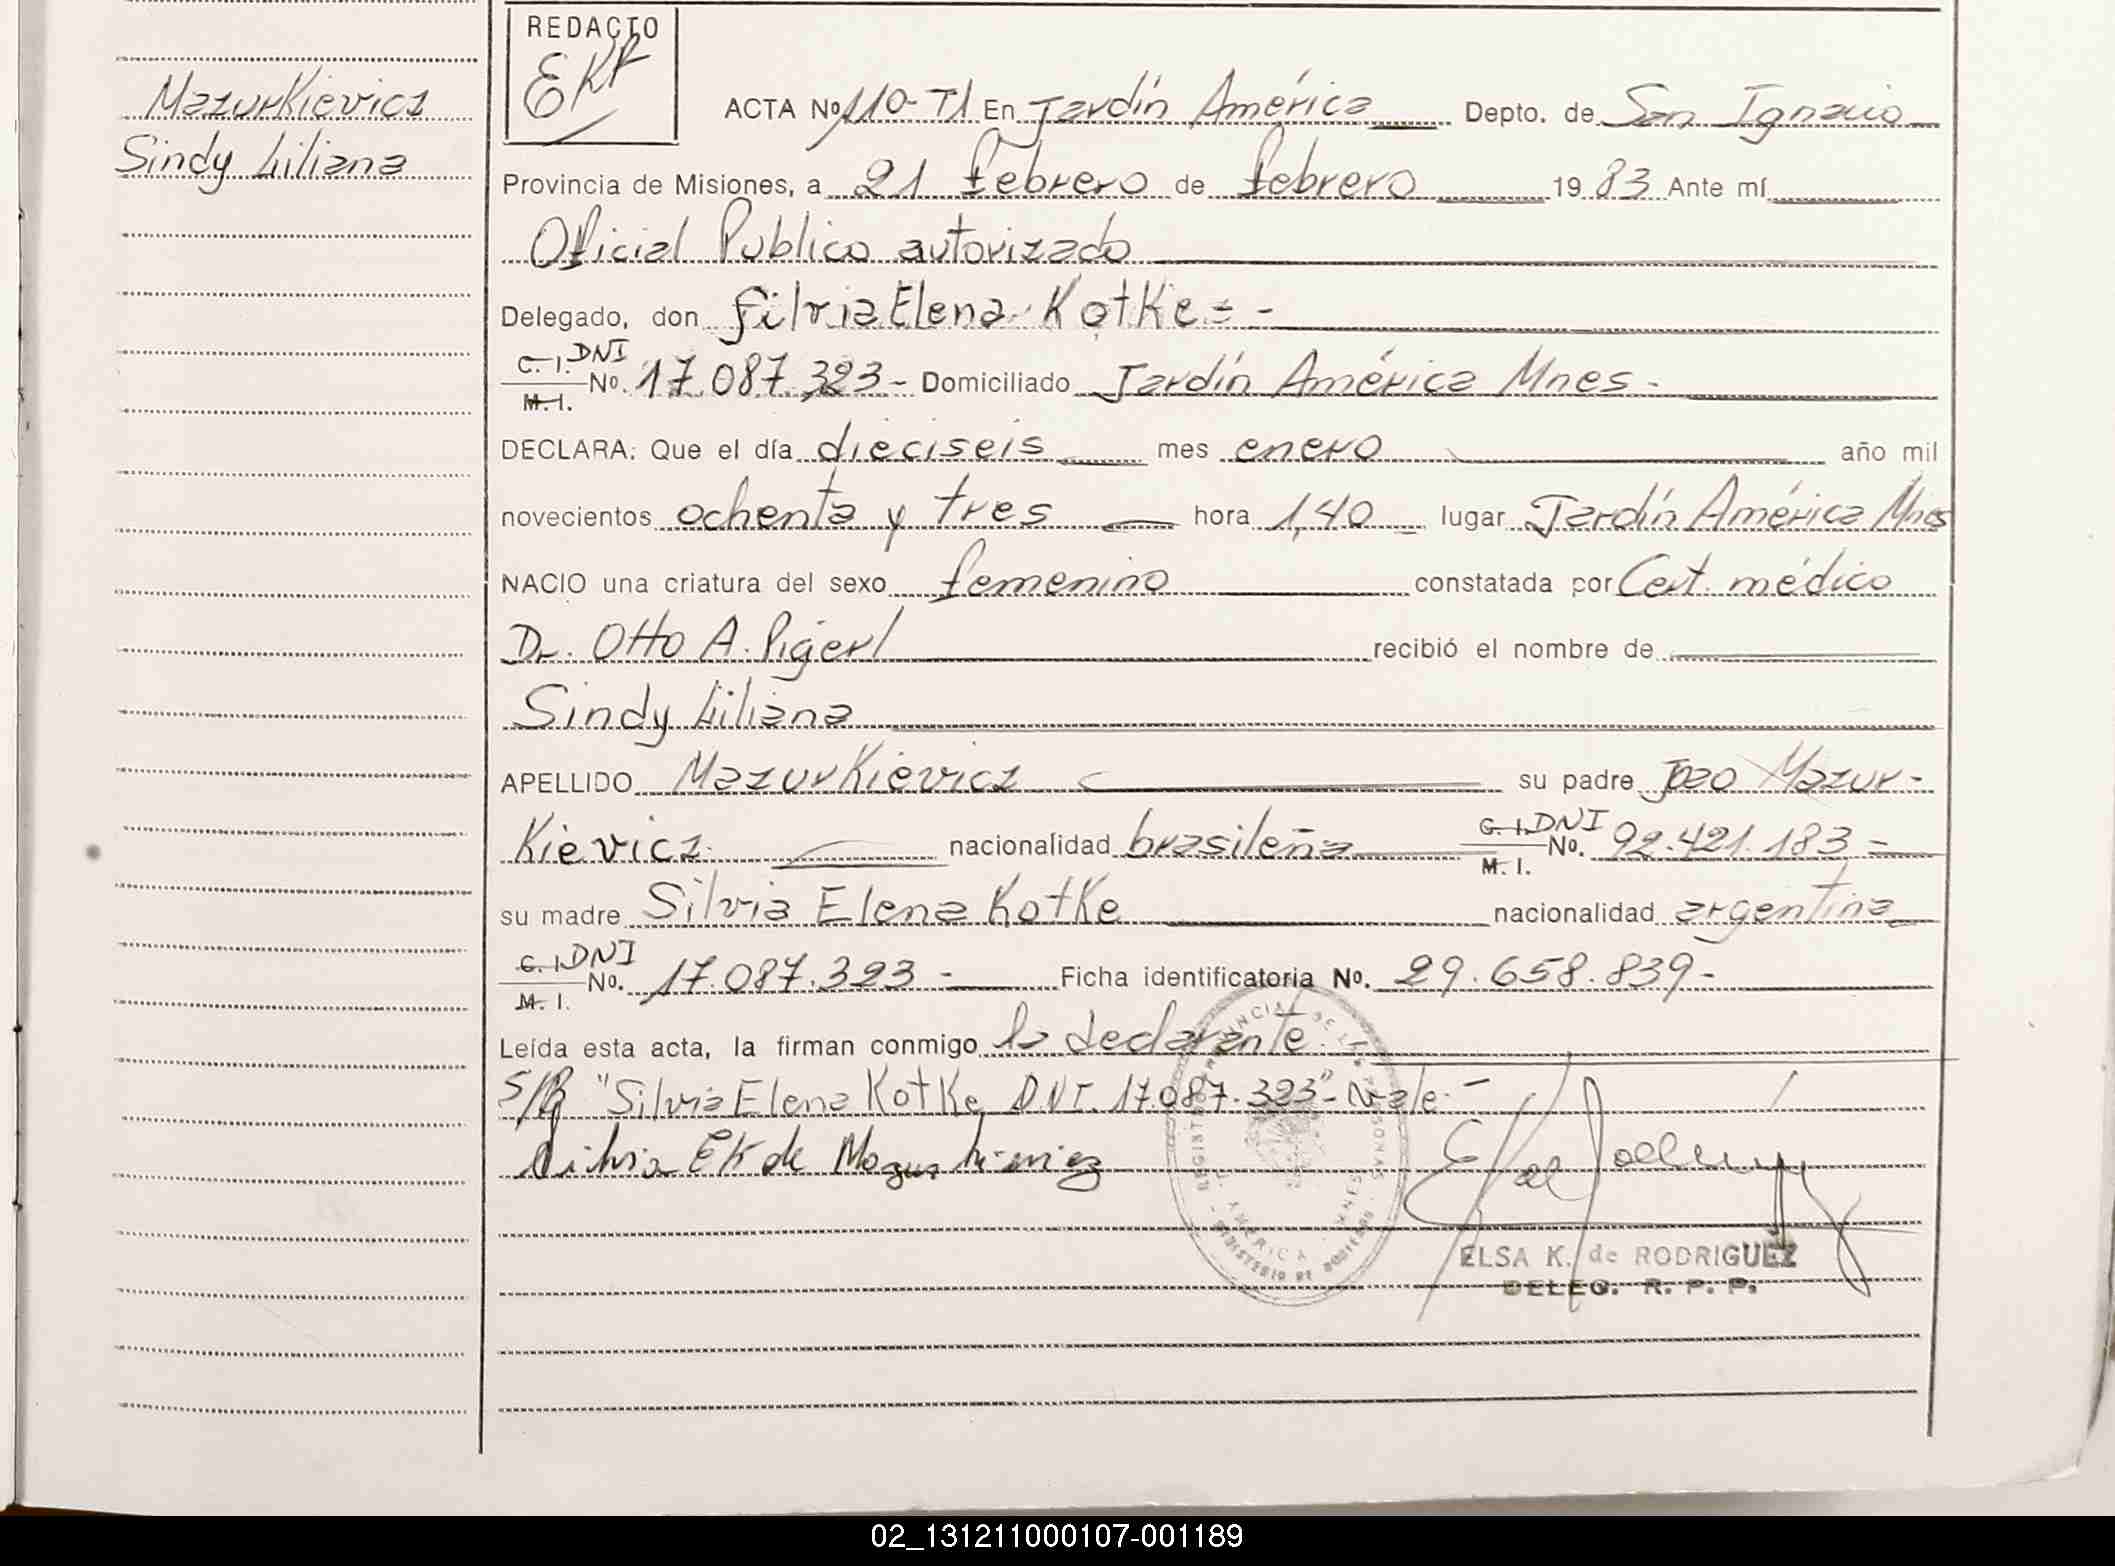 REDACTO
EKR
Mazurkievicz
Sindy Liliana
ACTA Nº 110-T1 En Jardín América Depto. de San Ignacio
Provincia de Misiones, a 21 febrero de febrero 1983 Ante mí
Oficial Publico autorizado
Delegado, don Silvia Elena Kotke = -
C. I. DNI
M. I. No. 17.087.323 - Domiciliado Jardín América Mnes -
DECLARA: Que el día dieciseis mes enero año mil
novecientos ochenta y tres hora 1,40 lugar Jardín América Mnes
NACIO una criatura del sexo femenino constatada por Cert. médico
Dr. Otto A. Pigerl recibió el nombre de
Sindy Liliana
APELLIDO Mazurkievicz su padre Joao Mazur-
kievicz nacionalidad brasileña C. I. DNI M. I. No. 92.421.183 -
su madre Silvia Elena Kotke nacionalidad argentina
C. I. DNI
M. I. No. 17.087.323 - Ficha identificatoria No. 29.658.839-
Leída esta acta, la firman conmigo la declarante.
S/R "Silvia Elena Kotke D.N.I. 17.087.323" - Vale. -
Silvia EK de Mazurkievicz
REGISTRO PROVINCIAL DE LAS PERSONAS
J. AMÉRICA - MNES.
MINISTERIO DE GOBIERNO
ELSA K. de RODRIGUEZ
DELEG. R. P. P.
02_131211000107-001189